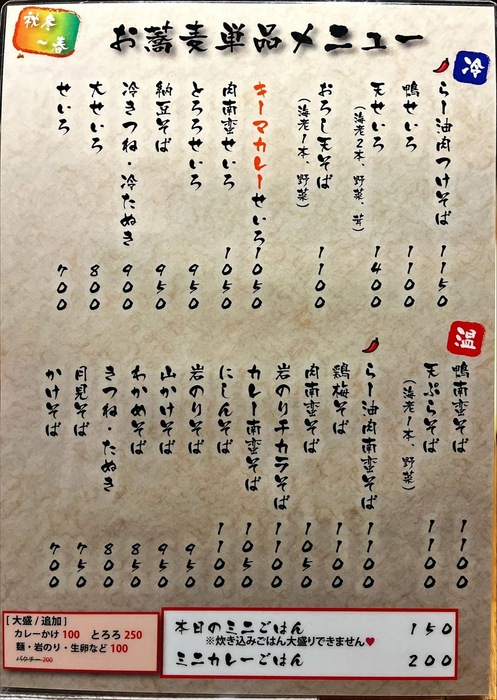 秋冬
〜春
お蕎麦単品メニュー
冷
らー油肉つけそば 1150
鴨せいろ 1100
天せいろ 1400
（海老2本、野菜、茸）
おろし天そば 1100
（海老1本、野菜）
キーマカレーせいろ 1050
肉南蛮せいろ 1050
とろろせいろ 950
納豆そば 950
冷きつね・冷たぬき 900
大せいろ 800
せいろ 700
温
鴨南蛮そば 1100
天ぷらそば 1100
（海老1本、野菜）
らー油肉南蛮そば 1100
鶏梅そば 1100
肉南蛮そば 1050
岩のりチカラそば 1100
カレー南蛮そば 1050
にしんそば 1100
岩のりそば 950
山かけそば 950
わかめそば 850
きつね・たぬき 800
月見そば 750
かけそば 700
[ 大盛 / 追加 ]
カレーかけ 100 とろろ 250
麺・岩のり・生卵など 100
パクチー 200
本日のミニごはん 150
※炊き込みごはん大盛りできません♥
ミニカレーごはん 200